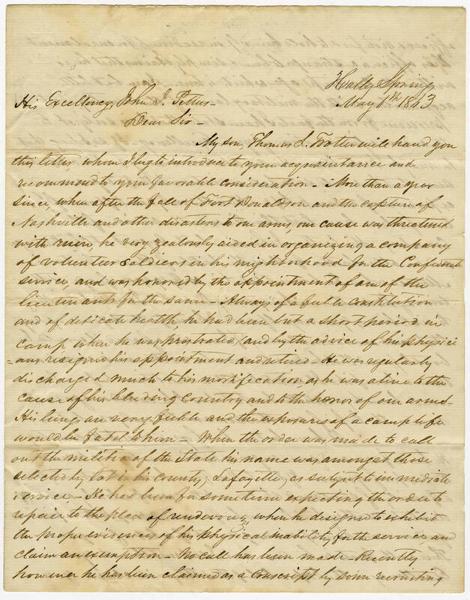 Holly Springs
May 1st 1863
His Excellency John J. Pettus
Dear Sir -
My son, Thomas J. Trotter will hand you
this letter whom I beg to introduce to your acquaintance and
recommend to your favorable consideration - More than a year
since, when after the fall of Fort Donaldson and the capture of
Nashville and other disasters to our arms, our cause was threatened
with ruin, he very zealously aided in organizing a company
of volunteer soldiers in his neighborhood for the Confederate
service, and was honored by the appointment of one of the
lieutenants for the same - Always of a feeble constitution
and of delicate health, he had been but a short period in
camp when he was prostrated, and by the advice of his physici-
-ans resigned his appointment and retired - He was regularly
discharged much to his mortification, as he was alive to the
cause of his bleeding Country and to the honor of our arms
His lungs are very feeble and the exposures of a camp life
would be fatal to him - When the order was made to call
out the militia of the State his name was amongst those
selected by lot in his county, Lafayette, as subject to immediate
service - He had been for some time expecting the order to
repair to the place of rendevous, when he designed to exhibit
the proper evidences of his physical inability for the service and
claim an exemption - No call has been made - Recently
however he has been claimed as a conscript by some recruiting